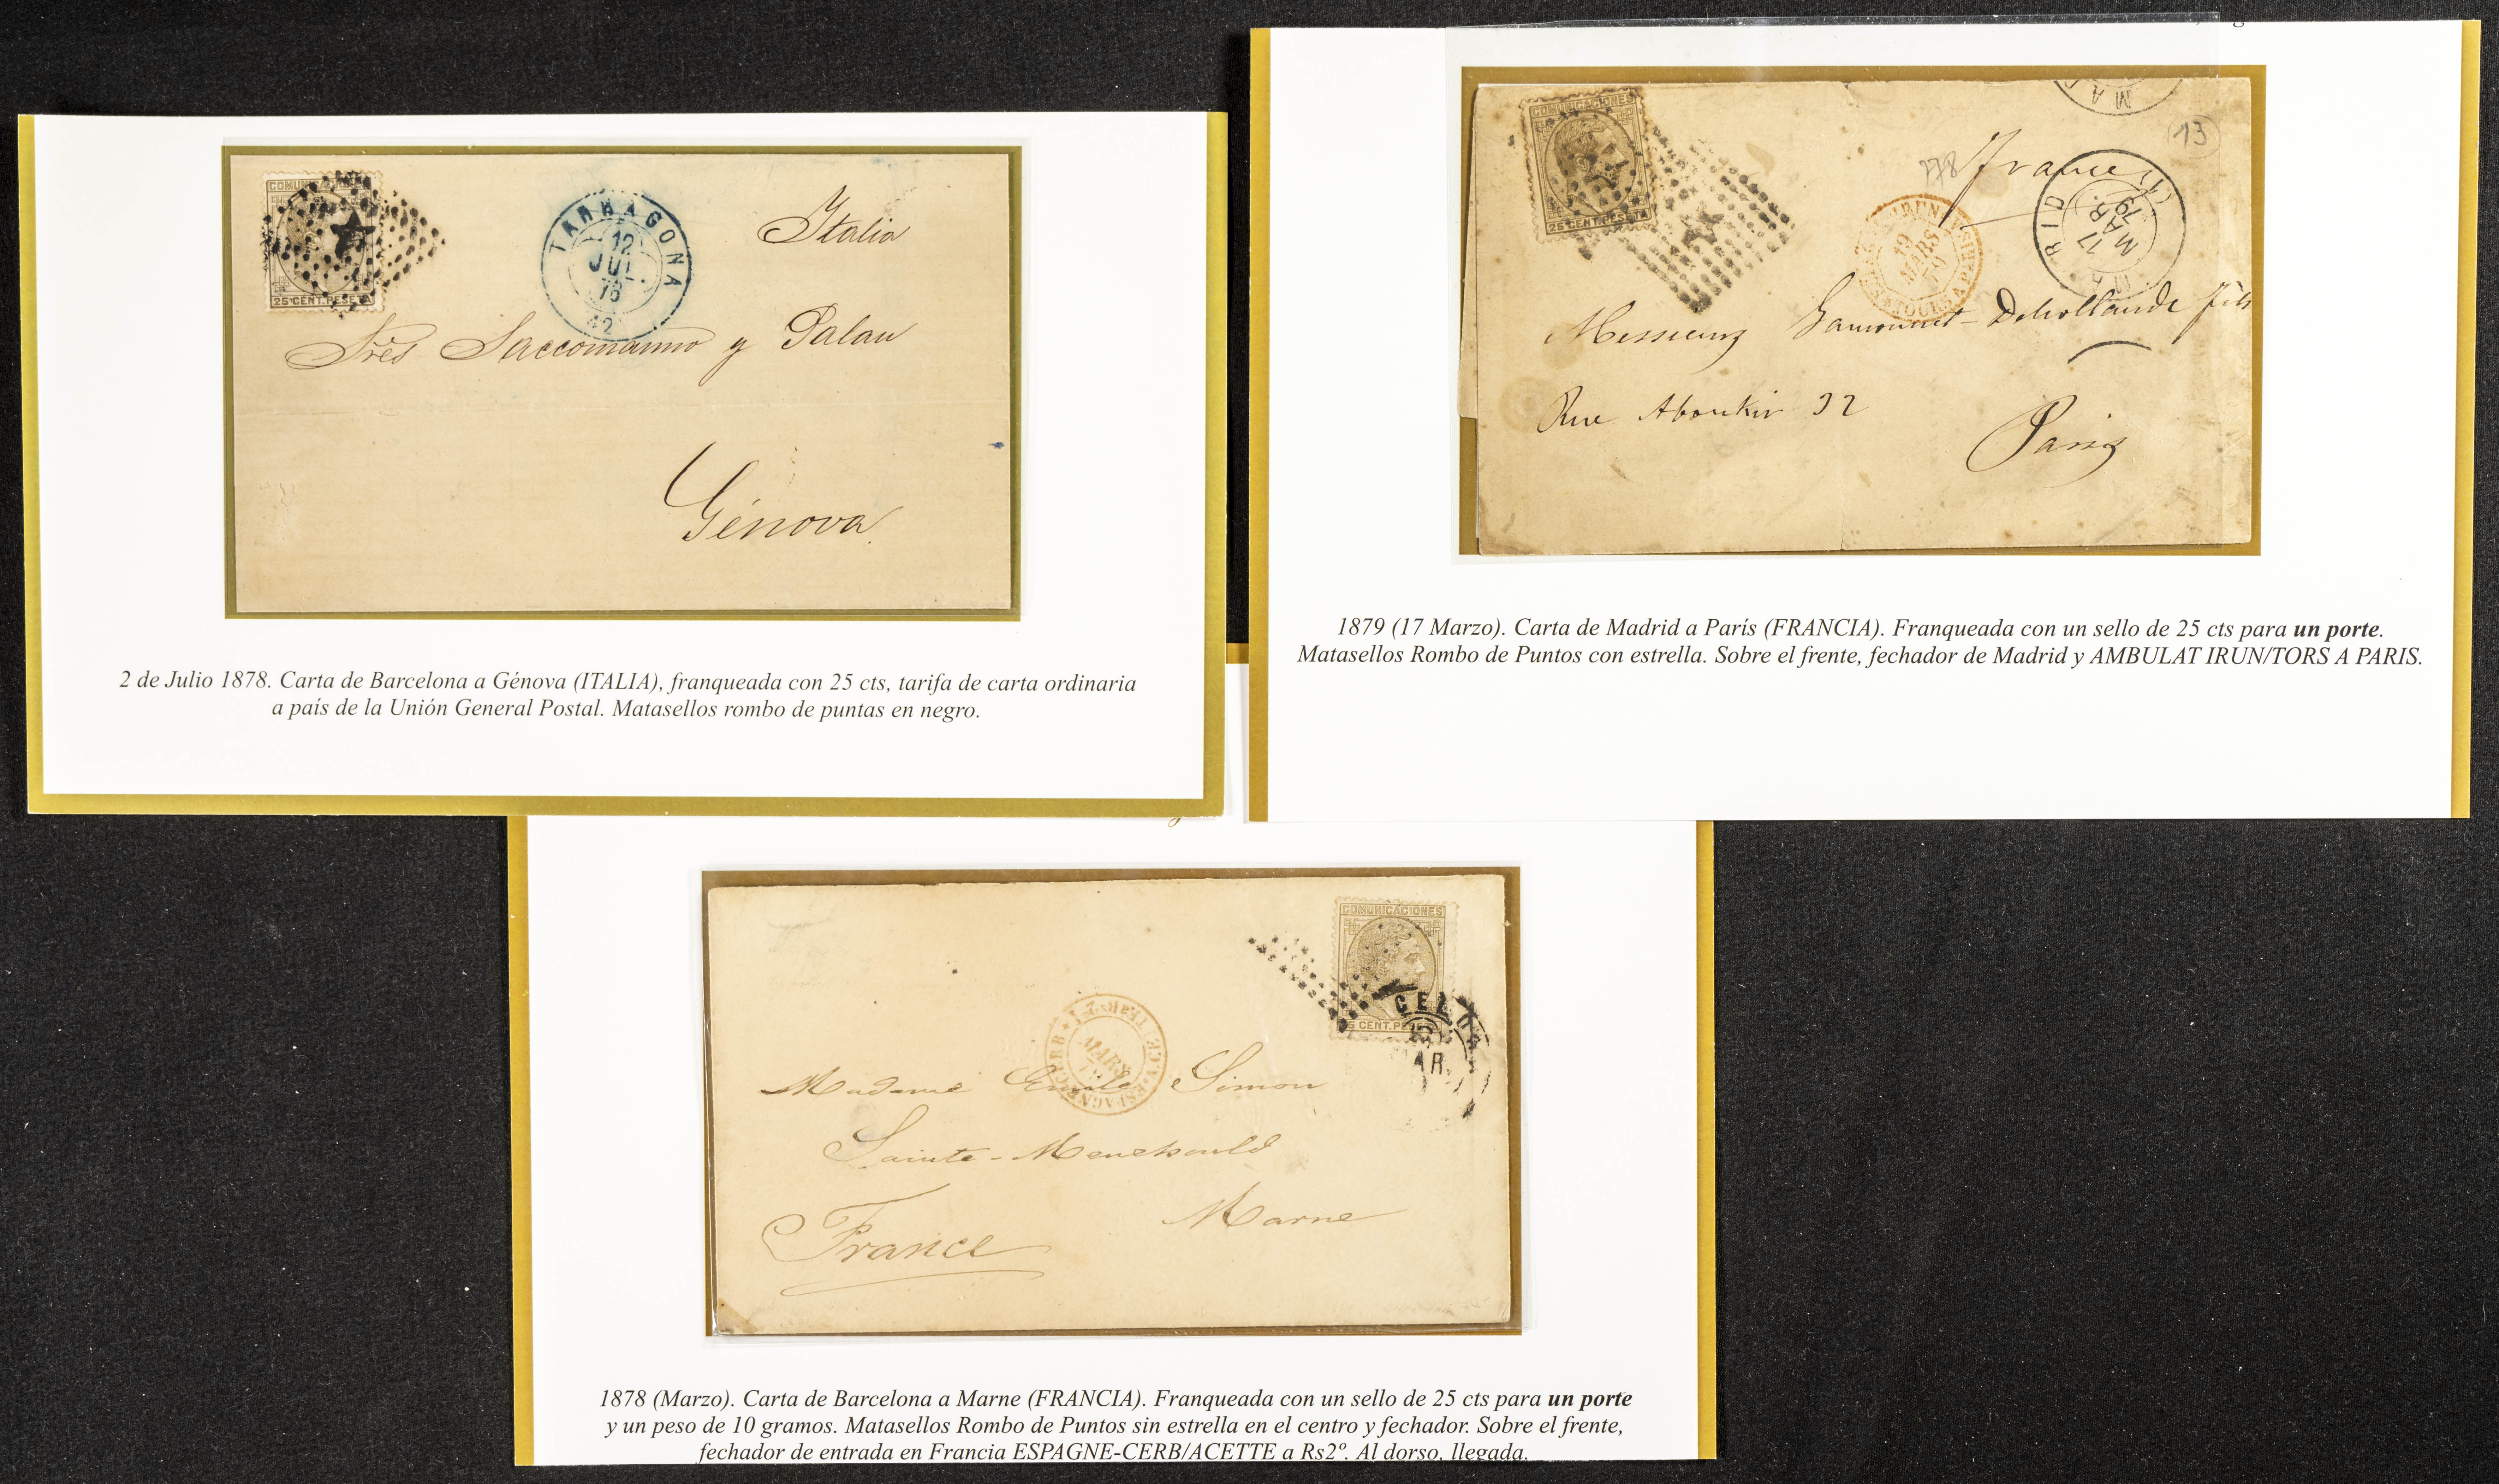 COMUNI
25 CENT. PESETA
TARRAGONA
12
JUL
78
42
Italia
Sres Saccomanno y Palau
Génova
2 de Julio 1878. Carta de Barcelona a Génova (ITALIA), franqueada con 25 cts, tarifa de carta ordinaria
a país de la Unión General Postal. Matasellos rombo de puntas en negro.
COMUNICACIONES
25 CENT. PESETA
MA
13
778
France
MADRID
17
MAR.
79
(1)
IRUN
19
MARS
79
TOURS A PARIS
Messieurs
Dehollande fils
Rue Aboukir 32
Paris
1879 (17 Marzo). Carta de Madrid a París (FRANCIA). Franqueada con un sello de 25 cts para un porte.
Matasellos Rombo de Puntos con estrella. Sobre el frente, fechador de Madrid y AMBULAT IRUN/TORS A PARIS.
COMUNICACIONES
5 CENT. PE
CEL
AR.
ESPAGNE CERB
MARS
Madame Emile Simon
Sainte-Menehould
Marne
France
1878 (Marzo). Carta de Barcelona a Marne (FRANCIA). Franqueada con un sello de 25 cts para un porte
y un peso de 10 gramos. Matasellos Rombo de Puntos sin estrella en el centro y fechador. Sobre el frente,
fechador de entrada en Francia ESPAGNE-CERB/ACETTE a Rs2º. Al dorso, llegada.